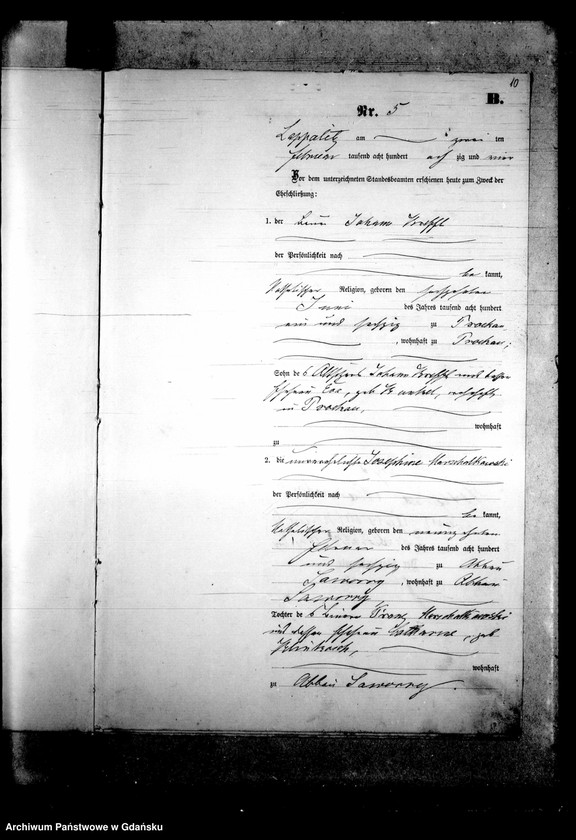 10
B.
Nr. 5
Lappalitz am zwei ten
Februar tausend acht hundert acht zig und vier
Vor dem unterzeichneten Standesbeamten erschienen heute zum Zweck der
Eheschließung:
1. der Johann
der Persönlichkeit nach
be kannt,
katholischer Religion, geboren den sechszehnten
Juni des Jahres tausend acht hundert
ein und sechzig zu Prockau
, wohnhaft zu Prockau,
Sohn de s Altsitzers Johann und dessen
Ehefrau Eva, geb. wohnhaft
in Prockau,
wohnhaft
zu
2. die unverehelichte Josephine Marschalkowski
der Persönlichkeit nach
be kannt,
katholischer Religion, geboren den neunzehnten
Februar des Jahres tausend acht hundert
und sechzig zu Abbau
Saworry , wohnhaft zu Abbau
Saworry
Tochter de s Franz Marschalkowski
und dessen Ehefrau Catharine, geb.
wohnhaft
zu Abbau Saworry.
Archiwum Państwowe w Gdańsku